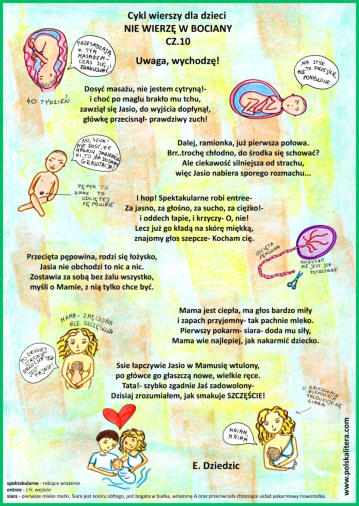 Cykl wierszy dla dzieci
NIE WIERZĘ W BOCIANY
CZ.10
Uwaga, wychodzę!
PRZESADZAJĄ
Z TYM
MASAŻEM-
CZAS SIĘ
40 TYDZIEŃ
Dosyć masażu, nie jestem cytryną!-
i choć po maglu brakło mu tchu,
zawziął się Jasio, do wyjścia dopłynął,
główkę przecisnął- prawdziwy zuch!
NA STYK
ALE TO PRZEJŚCIE
Dalej, ramionka, już pierwsza połowa.
Brr..trochę chłodno, do środka się schować?
Ale ciekawość silniejsza od strachu,
więc Jasio nabiera sporego rozmachu...
NO, SZOK!
NIE DOŚĆ, ŻE
GRAWITACJA!
PĘPEK TO
ZNAK PO
ODCIĘTEJ
PĘPOWINIE
I hop! Spektakularne robi entree-
Za jasno, za głośno, za sucho, za ciężko!-
i oddech łapie, i krzyczy- O, nie!
Lecz już go kładą na skórę miękką,
znajomy głos szepcze- Kocham cię.
ODCIĘTA
PĘPOWINA
ŁOŻYSKO
NIE JEST JUŻ
POTRZEBNE
Przecięta pępowina, rodzi się łożysko,
Jasia nie obchodzi to nic a nic.
Zostawia za sobą bez żalu wszystko,
myśli o Mamie, z nią tylko chce być.
MAMA - ZMĘCZONA
ALE SZCZĘŚLIWA
Mama jest ciepła, ma głos bardzo miły
i zapach przyjemny- tak pachnie mleko.
Pierwszy pokarm- siara- doda mu siły,
Mama wie najlepiej, jak nakarmić dziecko.
PO DRUGIEJ
STRONIE
BRZUCHA TEŻ
JEST FAJNIE!
Ssie łapczywie Jasio w Mamusię wtulony,
po główce go głaszczą nowe, wielkie ręce.
Tata!- szybko zgadnie Jaś zadowolony-
Dzisiaj zrozumiałem, jak smakuje SZCZĘŚCIE!
MNIAM,
MNIAM
SIARA
E. Dziedzic
www.polskalitera.com
spektakularne - robiące wrażenie
entree - z fr. wejście
siara - pierwsze mleko matki. Siara jest koloru żółtego, jest bogata w białka, witaminę A oraz przeciwciała chroniące układ pokarmowy noworodka.